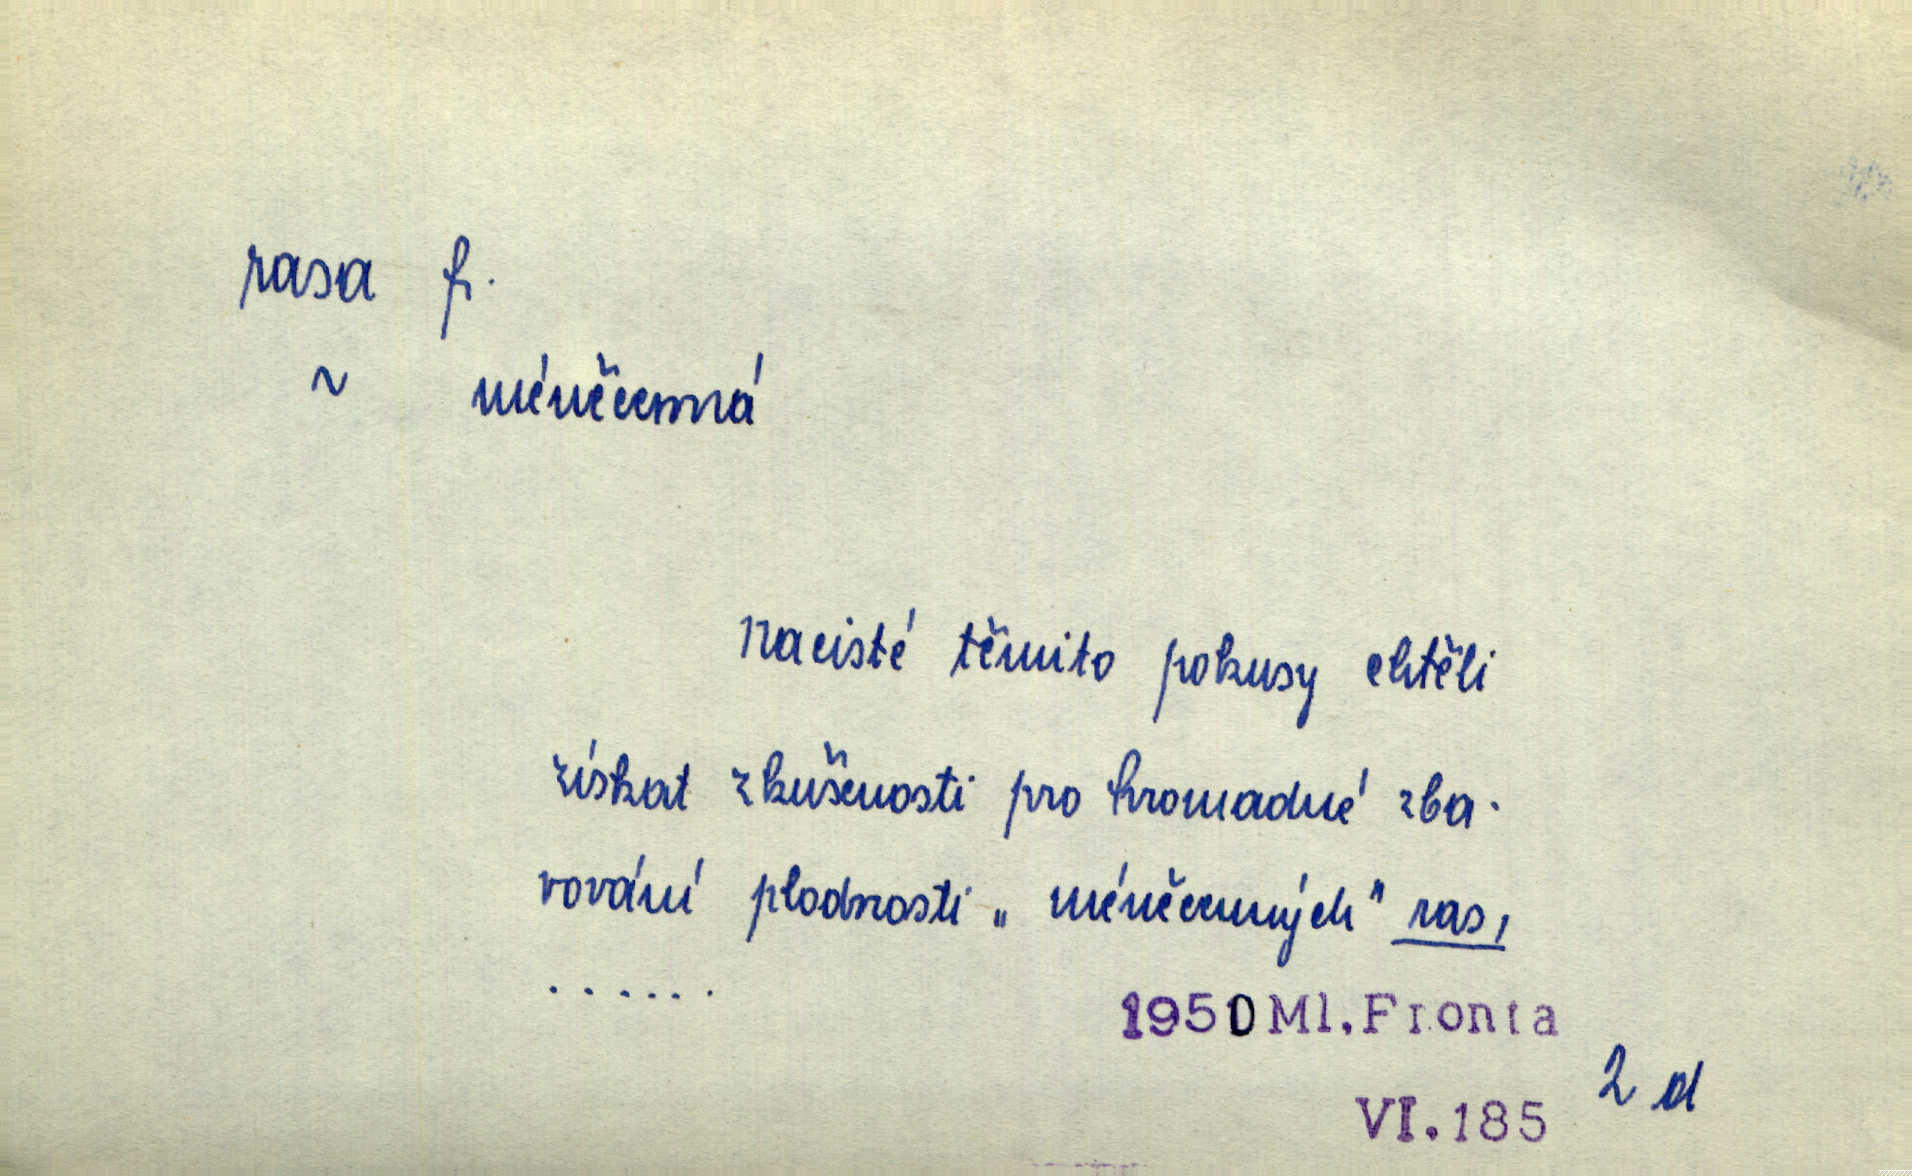 rasa f.
~ méněcenná
Nacisté těmito pokusy chtěli
získat zkušenosti pro hromadné zba-
vování plodnosti „méněcenných" ras,
. . . . . .
1950 Ml. Fronta
VI.185 2 d